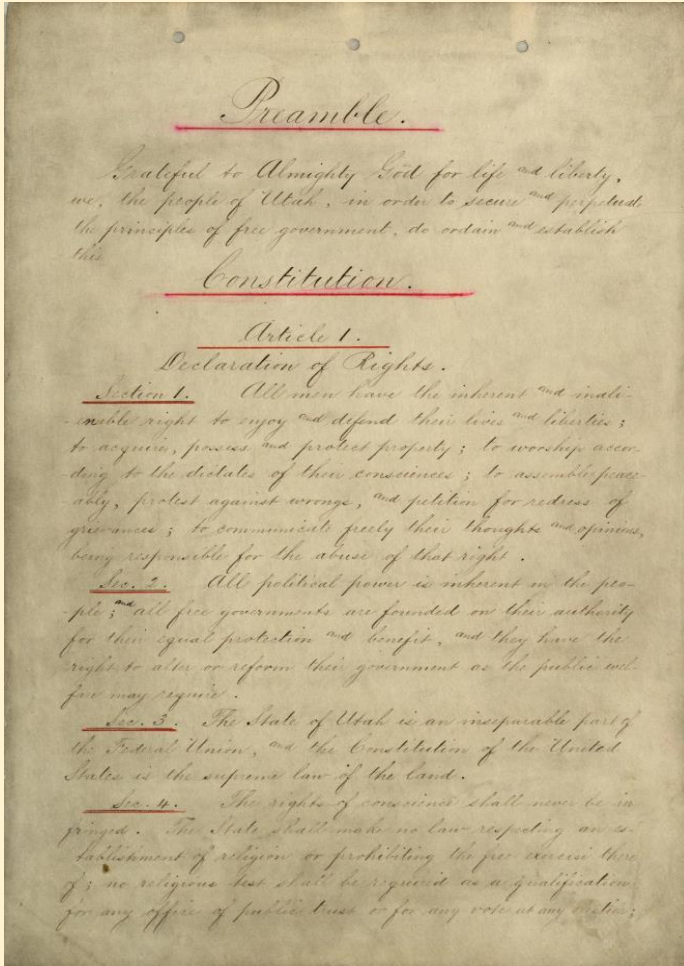 Preamble.
Grateful to Almighty God for life and liberty,
we, the people of Utah, in order to secure and perpetuate
the principles of free government, do ordain and establish
this
Constitution.
Article 1.
Declaration of Rights.
Section 1. All men have the inherent and inali-
-enable right to enjoy and defend their lives and liberties;
to acquire, possess and protect property; to worship accor-
ding to the dictates of their consciences; to assemble peace-
-ably, protest against wrongs, and petition for redress of
grievances; to communicate freely their thoughts and opinions,
being responsible for the abuse of that right.
Sec. 2. All political power is inherent in the peo-
-ple; and all free governments are founded on their authority
for their equal protection and benefit, and they have the
right to alter or reform their government as the public wel
fare may require.
Sec. 3. The State of Utah is an inseparable part of
the Federal Union, and the Constitution of the United
States is the supreme law of the land.
Sec. 4. The rights of conscience shall never be in
fringed. The State shall make no law respecting an es-
tablishment of religion or prohibiting the free exercise there
of; no religious test shall be required as a qualification
for any office of public trust or for any vote at any election;